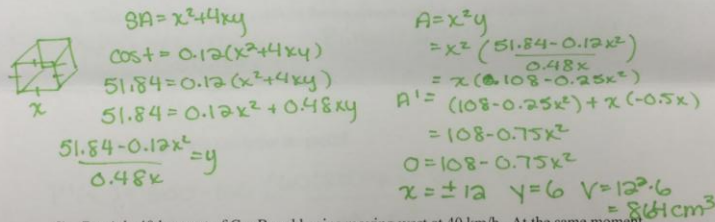 SA = x²+4xy
cost = 0.12(x²+4xy)
51.84 = 0.12(x²+4xy)
51.84 = 0.12x² + 0.48xy
51.84-0.12x² / 0.48x = y
x
A = x²y
= x² (51.84-0.12x² / 0.48x)
= x(0.108-0.25x²)
A' = (108-0.25x²) + x(-0.5x)
= 108-0.75x²
0 = 108-0.75x²
x = ±12 y=6 V=12²·6
= 864cm³
west at 40 km/h. At the same moment